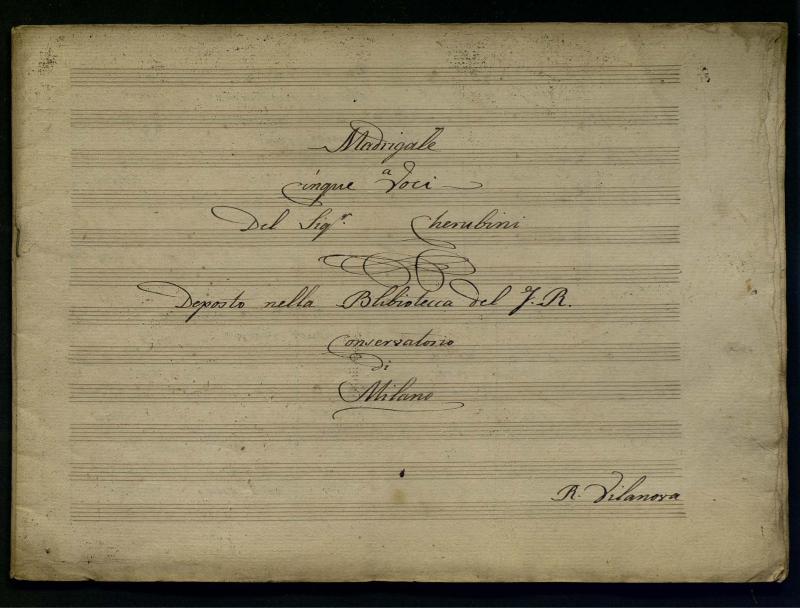 Madrigale
a
Cinque Voci
Del Sigr. Cherubini
Deposto nella Blibioteca del J. R.
Conservatorio
di
Milano
R. Vilanova